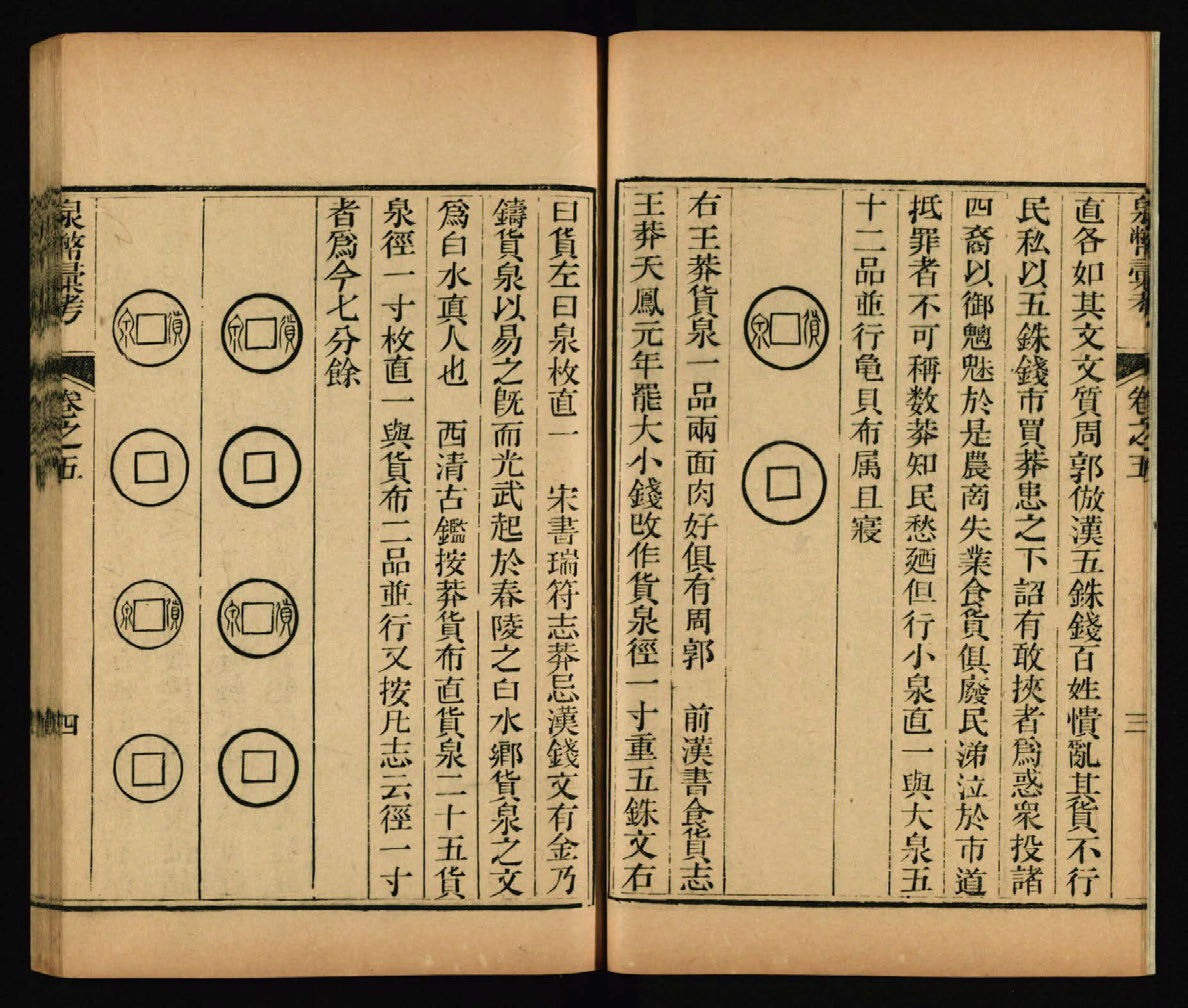 泉幣彙考
卷之五
三
直各如其文文質周郭倣漢五銖錢百姓憒亂其貨不行
民私以五銖錢市買莽患之下詔有敢挾者爲惑衆投諸
四裔以御魑魅於是農商失業食貨俱廢民涕泣於市道
抵罪者不可稱数莽知民愁廼但行小泉直一與大泉五
十二品並行龟貝布属且寢
貨泉
右王莽貨泉一品兩面肉好俱有周郭 前漢書食貨志
王莽天鳳元年罷大小錢改作貨泉徑一寸重五銖文右
曰貨左曰泉枚直一 宋書瑞符志莽忌漢錢文有金乃
鑄貨泉以易之旣而光武起於舂陵之白水鄉貨泉之文
爲白水真人也 西清古鑑按莽貨布直貨泉二十五貨
泉徑一寸枚直一與貨布二品並行又按凡志云徑一寸
者爲今七分餘
貨泉
貨泉
貨泉
貨泉
泉幣彙考
卷之五
四